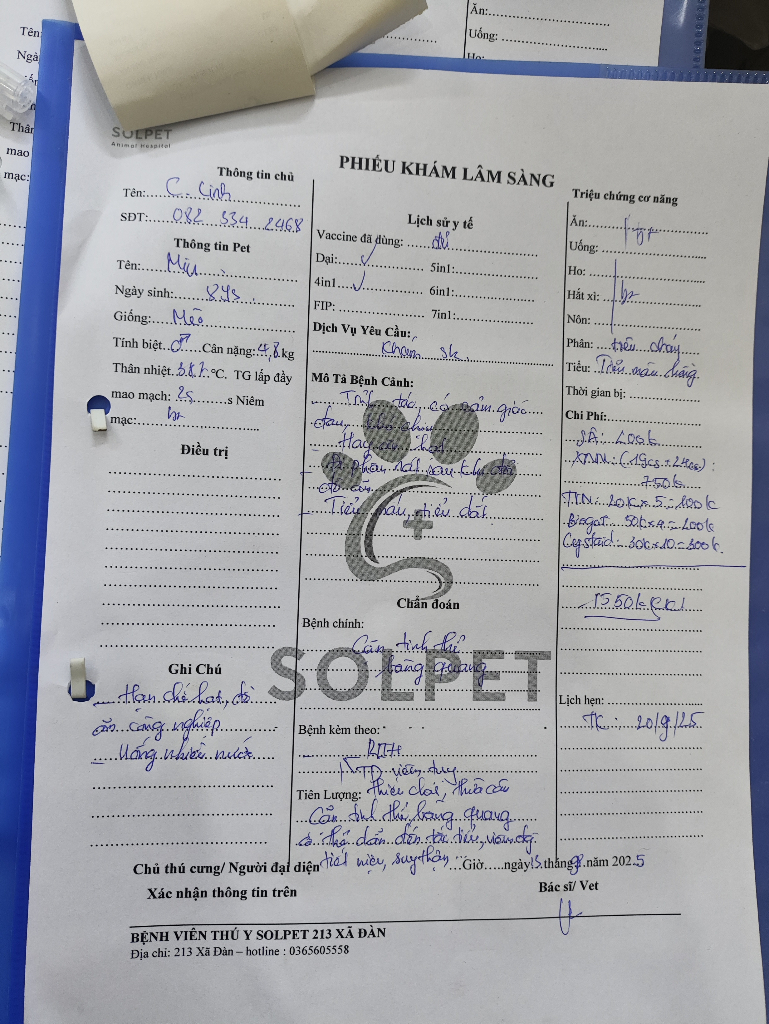 Ăn:
Uống:
Ho:
Tên:
Ngà
Thân
mao
mạc:
SOLPET
Animal Hospital
PHIẾU KHÁM LÂM SÀNG
Thông tin chủ
Tên: C. Linh
SĐT: 082 334 2468
Thông tin Pet
Tên: Miu
Ngày sinh: 8ys
Giống: Mèo
Tính biệt ♂ Cân nặng: 4,8 kg
Thân nhiệt °C. TG lấp đầy
mao mạch: 2s s Niêm
mạc: bt
Điều trị
Ghi Chú
Hạn chế hạt, đồ
ăn công nghiệp
Uống nhiều nước
Lịch sử y tế
Vaccine đã dùng: đủ
Dại: ✓ 5in1:
4in1 ✓ 6in1:
FIP: 7in1:
Dịch Vụ Yêu Cầu:
Khám sk
Mô Tả Bệnh Cảnh:
có cảm giác
đau
Hay ăn hạt
Đi phân nát sau khi đổi
đồ ăn
Tiểu máu, tiểu dắt
Chẩn đoán
Bệnh chính:
Cặn tinh thể
bàng quang
SOLPET
Bệnh kèm theo:
RLTH
viêm tụy
Tiên Lượng: Thiếu chất, thiếu cân
Cặn tinh thể bàng quang
có thể dẫn đến tắc tiểu, viêm đg
tiết niệu, suy thận
Triệu chứng cơ năng
Ăn: bt
Uống:
Ho:
Hắt xì: bt
Nôn:
Phân: tiêu chảy
Tiểu: Tiểu máu
Thời gian bị:
Chi Phí:
SÂ: 200k
XNM: (19cs + 24cs):
750k
TTN: 20k x 5 = 100k
Biogat: 50k x 4 = 200k
Cystaid: 30k x 10 = 300k
1550k
Lịch hẹn:
TK: 20/9/25
Chủ thú cưng/ Người đại diện
Giờ.....ngày 13 tháng năm 2025
Xác nhận thông tin trên
Bác sĩ/ Vet
BỆNH VIỆN THÚ Y SOLPET 213 XÃ ĐÀN
Địa chỉ: 213 Xã Đàn – hotline : 0365605558